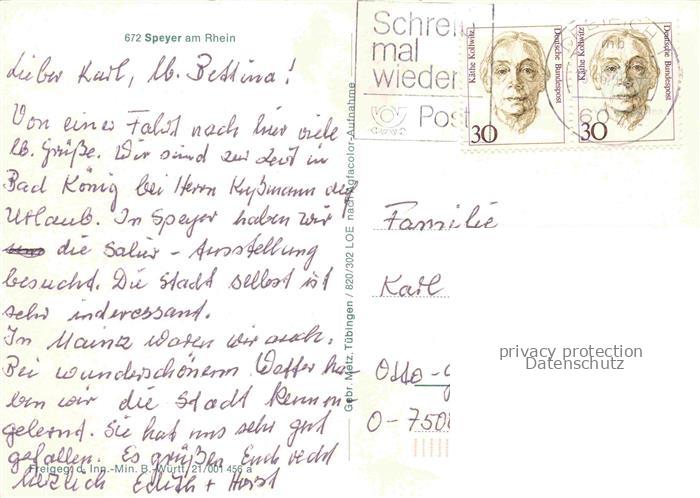 672 Speyer am Rhein
Lieber Karl, lb. Bettina!
Von einer Fahrt nach hier viele
lb. Grüße. Wir sind zur Zeit in
Bad König bei Herrn Kußmann in
Urlaub. In Speyer haben wir
die Salier - Ausstellung
besucht. Die Stadt selbst ist
sehr interessant.
In Mainz waren wir auch.
Bei wunderschönem Wetter ha-
ben wir die Stadt kennen-
gelernt. Sie hat uns sehr gut
gefallen. Es grüßen Euch recht
herzlich Edith + Horst
Freigeg. d. Inn.-Min. B.-Württ. 21/001 456 a
Gebr. Metz, Tübingen / 820/302 LOE nach Agfacolor-Aufnahme
Schreib
mal
wieder
Post
Käthe Kollwitz
Deutsche Bundespost
30
Käthe Kollwitz
Deutsche Bundespost
30
Familie
Karl
Otto-
O-750
privacy protection
Datenschutz